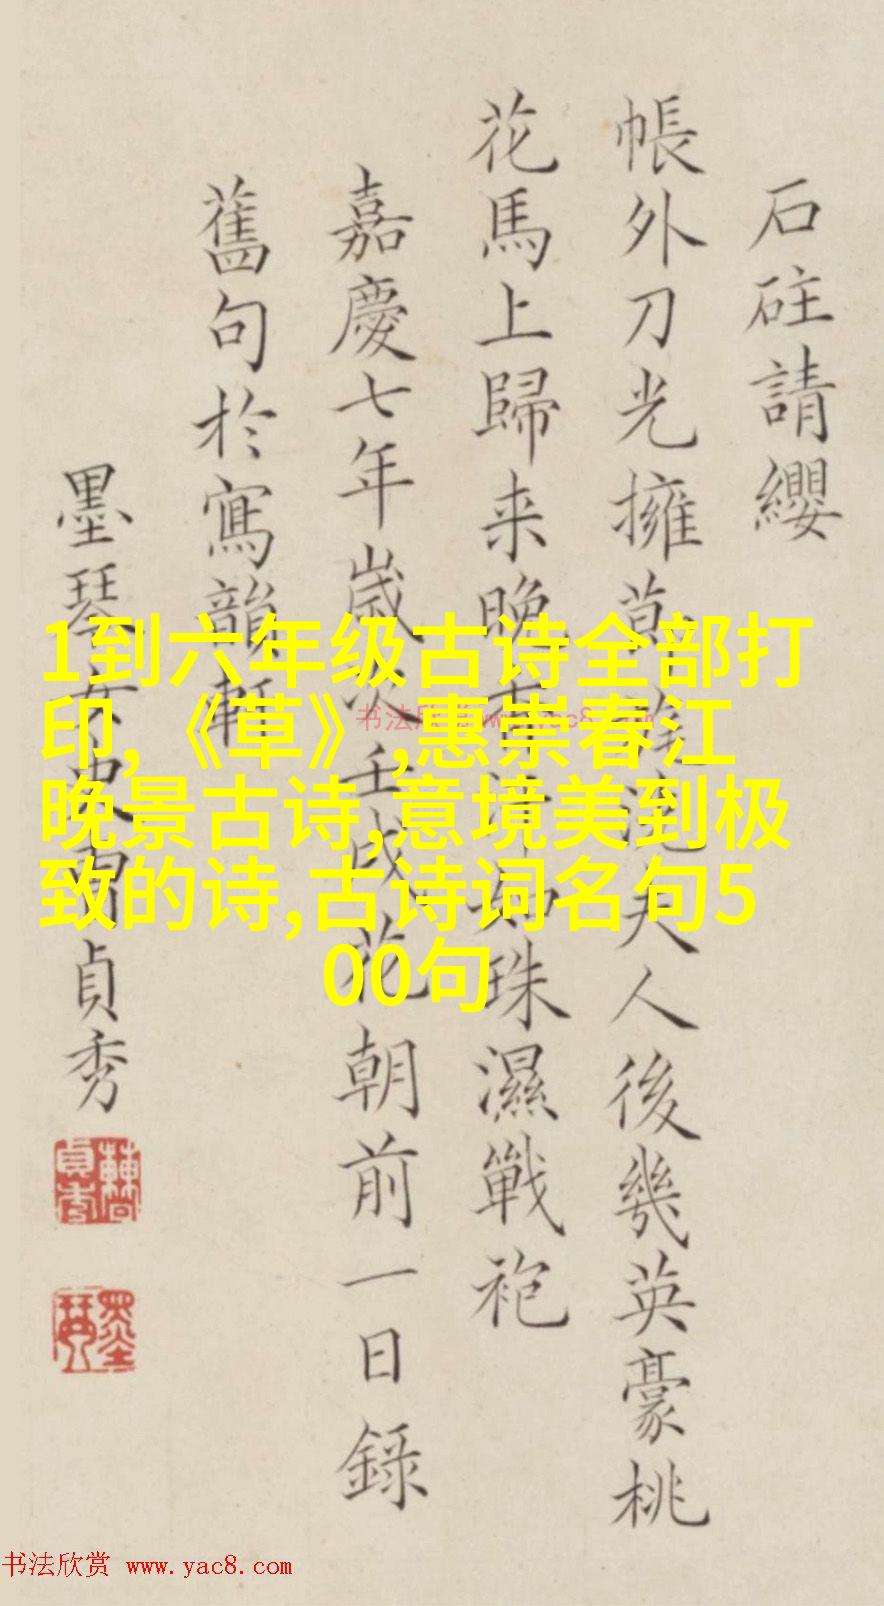 石砫請纓
帳外刀光擁 洗夫人後幾英豪桃
花馬上歸来晚香汗如珠濕戰袍
嘉慶七年歲次壬戌花朝前一日錄
舊句於寫韻軒
墨琴女史曹貞秀
墨琴
1到六年级古诗全部打
印,《草》,惠崇春江
晚景古诗,意境美到极
致的诗,古诗词名句5
00句
书法欣赏 www.yac8.com